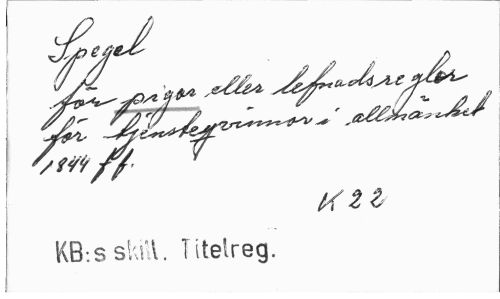 Spegel
för pigor eller lefnadsregler
för tjensteqvinnor i allmänhet
1844 ff.
K 22
KB:s skill. Titelreg.